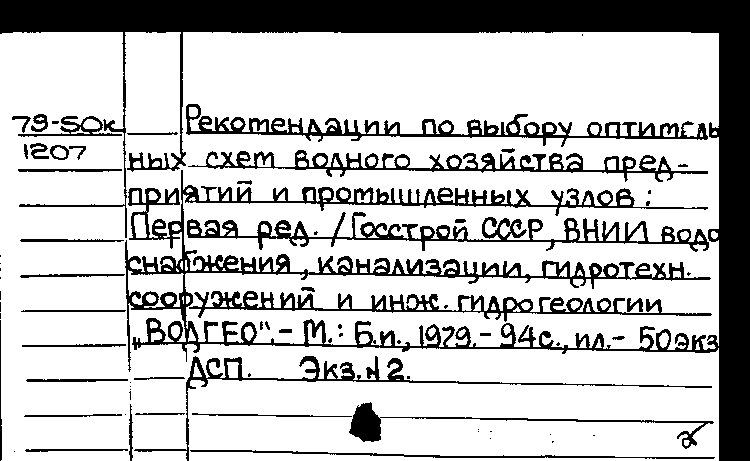 79-50к
1207
Рекомендации по выбору оптималь
ных схем водного хозяйства пред-
приятий и промышленных узлов:
Первая ред. /Госстрой СССР, ВНИИ водо
снабжения, канализации, гидротехн.
сооружений и инж. гидрогеологии
„ВОДГЕО“.- М.: Б.и., 1979.- 94с., ил.- 50экз
ДСП. Экз.№2.